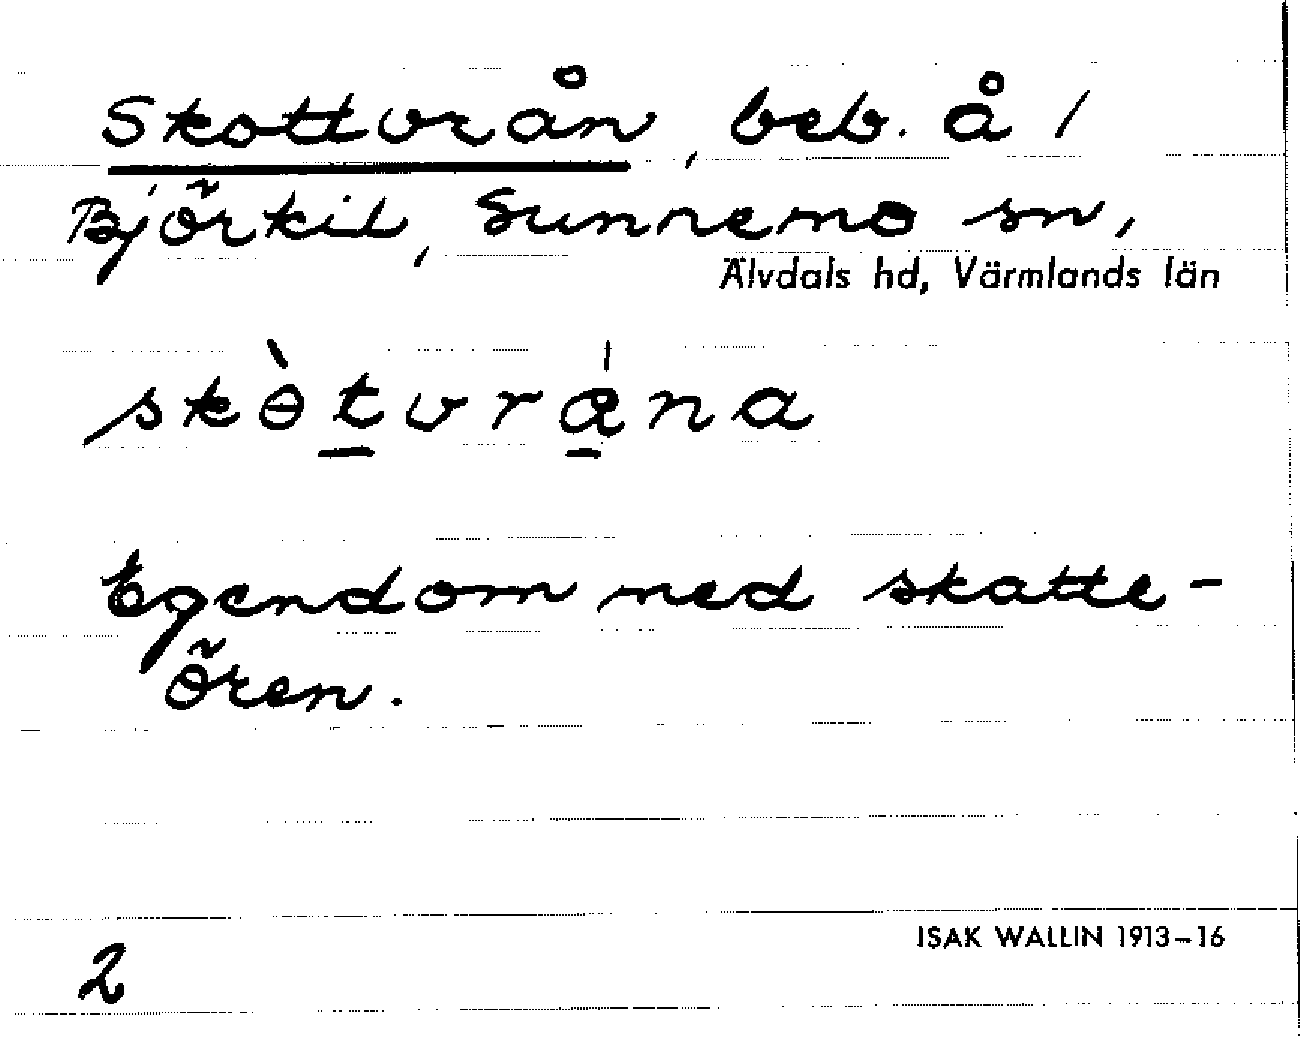 Skottvrån, beb. å /
Björkil, Sunnemo sn,
Älvdals hd, Värmlands län
skɵ̀tvrána
Egendom med skatte-
ören.
ISAK WALLIN 1913-16
2